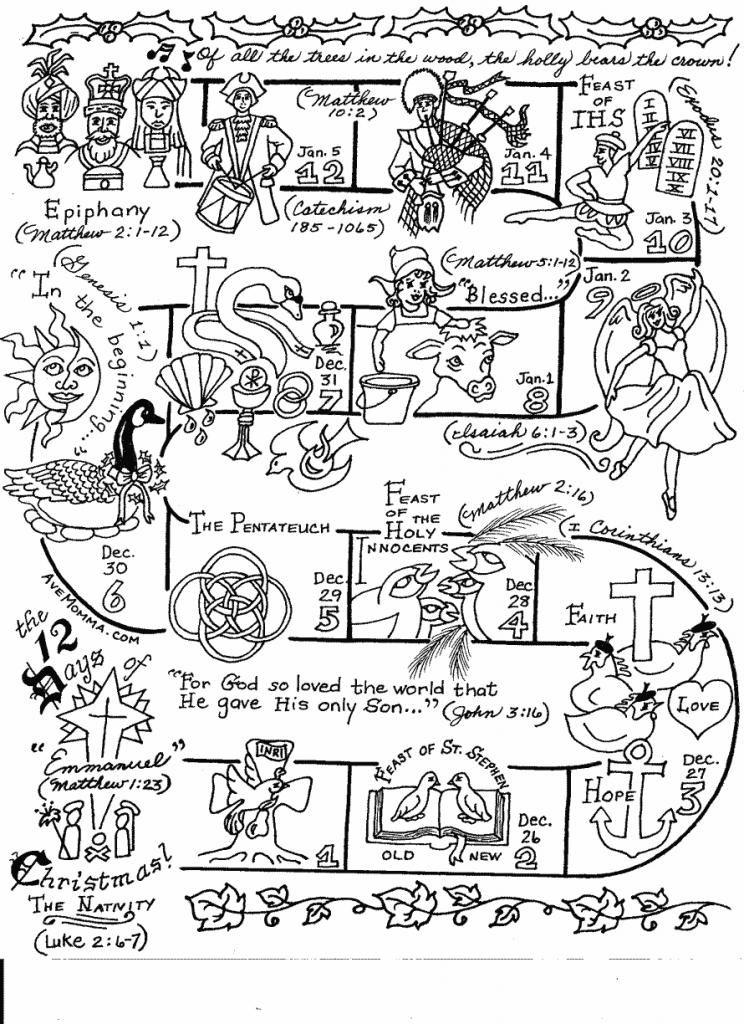 Of all the trees in the wood, the holly bears the crown!
Epiphany
(Matthew 2:1-12)
Jan. 5
12
(Matthew
10:2)
(Catechism
185-1065)
Jan. 4
11
FEAST
OF
IHS
I
II
III
(Exodus 20:1-17)
Jan. 3
10
Jan. 2
9
(Isaiah 6:1-3)
(Matthew 5:1-12)
"Blessed..."
Jan. 1
8
Dec.
31
7
(Genesis 1:1)
"In the beginning..."
Dec.
30
6
AVEMOMMA.COM
THE PENTATEUCH
Dec.
29
5
FEAST
OF THE
HOLY
INNOCENTS
(Matthew 2:16)
Dec.
28
4
(I Corinthians 13:13)
FAITH
LOVE
HOPE
Dec.
27
3
"For God so loved the world that
He gave His only Son..." (John 3:16)
FEAST OF ST. STEPHEN
OLD NEW
Dec.
26
2
INRI
1
the
12
Days of
"Emmanuel"
(Matthew 1:23)
Christmas!
THE NATIVITY
(Luke 2:6-7)